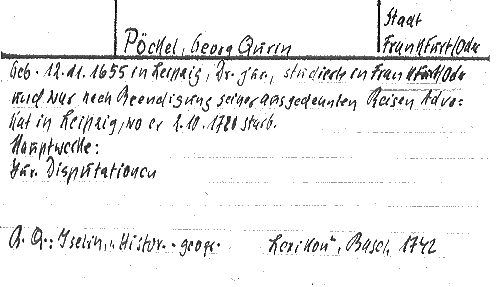 Stadt
Pöckel, Georg Quirin Frankfurt/Oder
Geb. 12.11.1655 in Leipzig, Dr. jur., studierte in Frankfurt/Oder
und war nach Beendigung seiner ausgedehnten Reisen Advo-
kat in Leipzig, wo er 2.10.1720 starb.
Hauptwerke:
Jur. Disputationen
A. Q.: Iselin, „Histor.-geogr. Lexikon", Basel, 1742